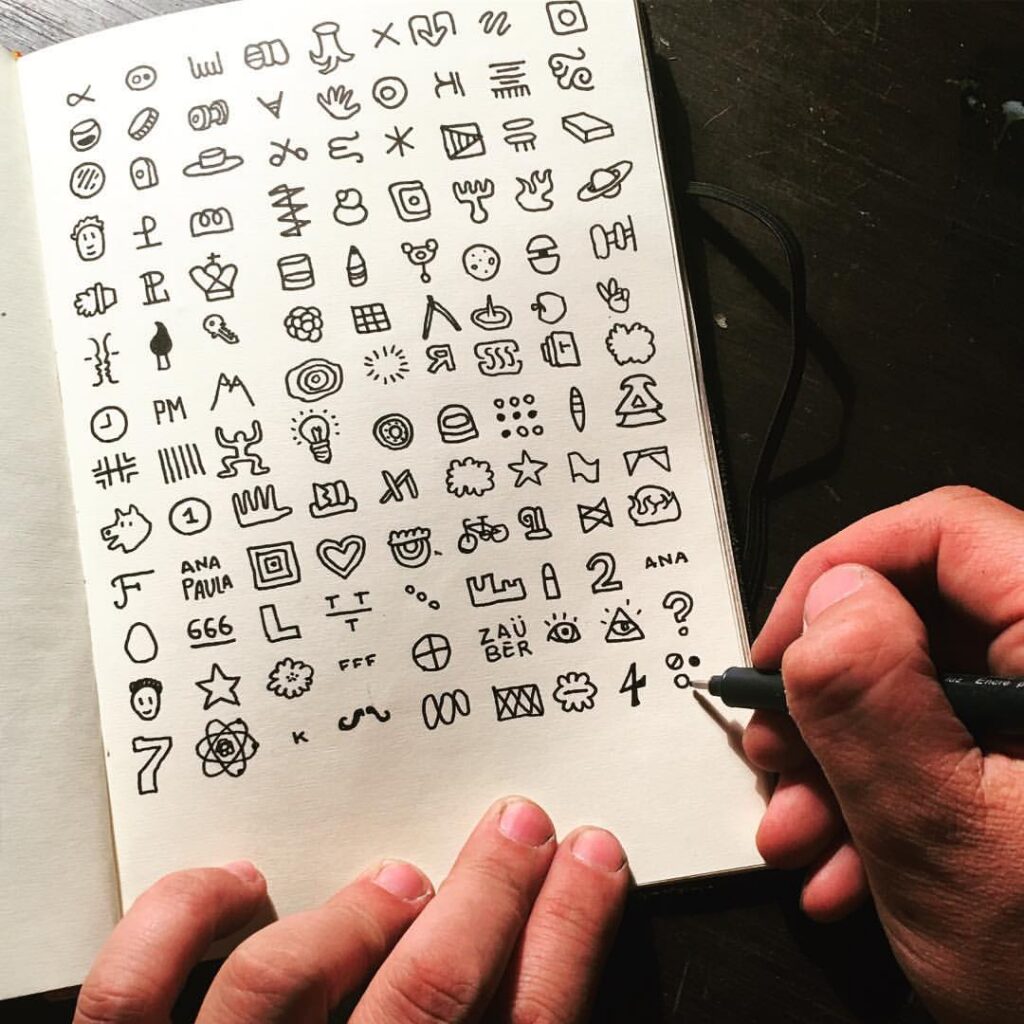 Я
PM
1
F
ANA
PAULA
2
ANA
666
L
T T
T
ZAÜ
BËR
?
FFF
4
7
K